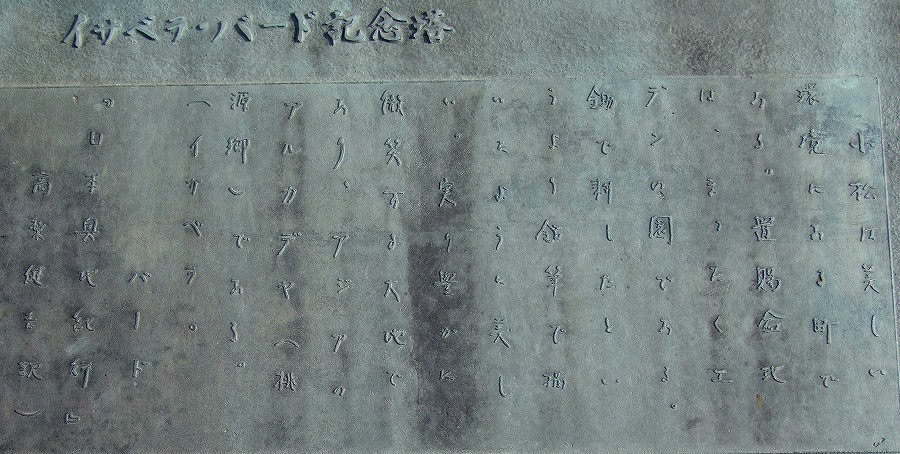 イサベラ・バード記念塔
小松は美しい
環境にある町で
ある。置賜盆地
は、まったくエ
デンの園である。
鋤で耕したとい
うより鉛筆で描
いたように美し
い。実り豊かに
微笑する大地で
あり、アジアの
アルカデヤ(桃
源郷)である。
(イサベラ。
バード
『日本奥地紀行』
高梨健吉訳)